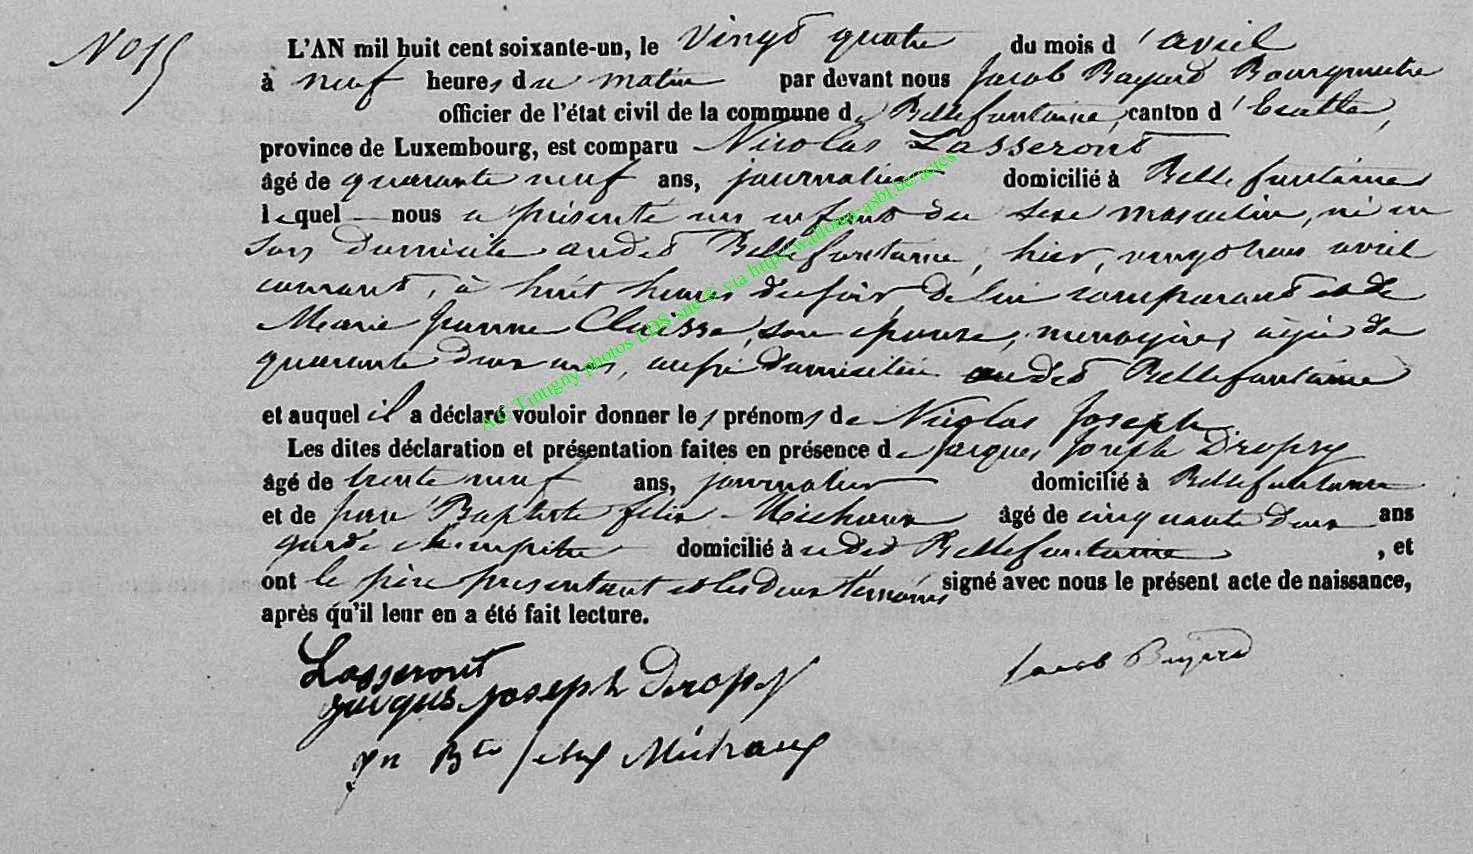 N° 15
L'AN mil huit cent soixante-un, le vingt quatre du mois d'avril
à neuf heures du matin par devant nous Jacob Bayard Bourgmestre
officier de l'état civil de la commune de Bellefontaine, canton d'Etalle,
province de Luxembourg, est comparu Nicolas Lasseront
âgé de quarante neuf ans, journalier domicilié à Bellefontaine
lequel nous a présenté un enfant du sexe masculin, né en
son domicile audit Bellefontaine, hier, vingt trois avril
courant, à huit heures du soir, de lui comparant et de
Marie Jeanne Claisse, son épouse, ménagère, âgée de
quarante deux ans, aussi domiciliée audit Bellefontaine
et auquel il a déclaré vouloir donner les prénoms de Nicolas Joseph
Les dites déclaration et présentation faites en présence de Jacques Joseph Dropsy
âgé de trente neuf ans, journalier domicilié à Bellefontaine
et de Jean Baptiste felix Michaux âgé de cinquante deux ans
garde champêtre domicilié à udit Bellefontaine , et
ont le père présentant et les deux témoins signé avec nous le présent acte de naissance,
après qu'il leur en a été fait lecture.
Lasseront
Jacques Joseph Dropsy
Jacob Bayard
Jn Bte felix Michaux
AC Tintigny photos LDS site © via http://wallonia-asbl.be/actes